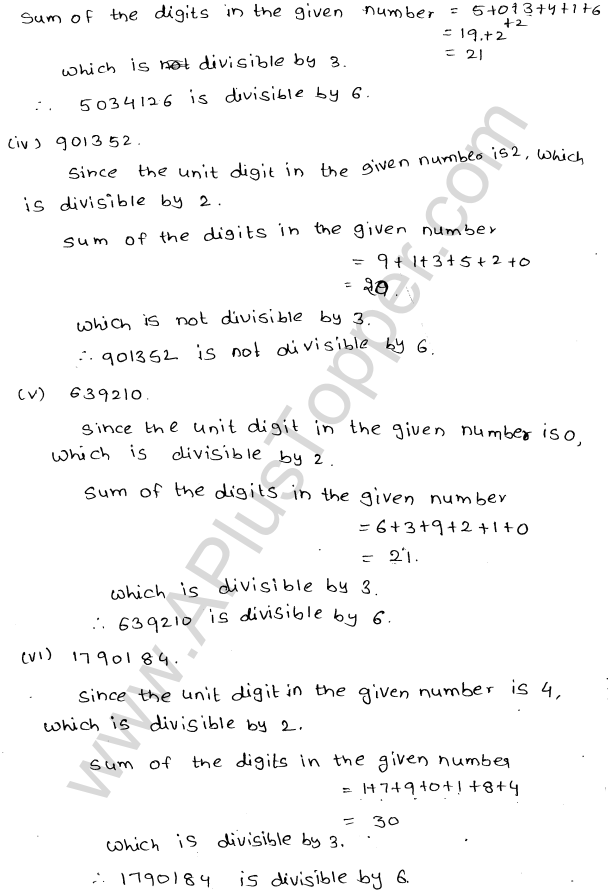 Sum of the digits in the given number = 5+0+3+4+1+6
+2
= 19+2
= 21
which is not divisible by 3.
∴ 5034126 is divisible by 6.
(iv) 901352.
Since the unit digit in the given number is 2, which
is divisible by 2.
Sum of the digits in the given number
= 9+1+3+5+2+0
= 20.
which is not divisible by 3.
∴ 901352 is not divisible by 6.
(v) 639210.
Since the unit digit in the given number is 0,
which is divisible by 2.
Sum of the digits in the given number
= 6+3+9+2+1+0
= 21.
which is divisible by 3.
∴ 639210 is divisible by 6.
(vi) 1790184.
Since the unit digit in the given number is 4,
which is divisible by 2.
Sum of the digits in the given number
= 1+7+9+0+1+8+4
= 30
which is divisible by 3.
∴ 1790184 is divisible by 6.
www.APlusTopper.com